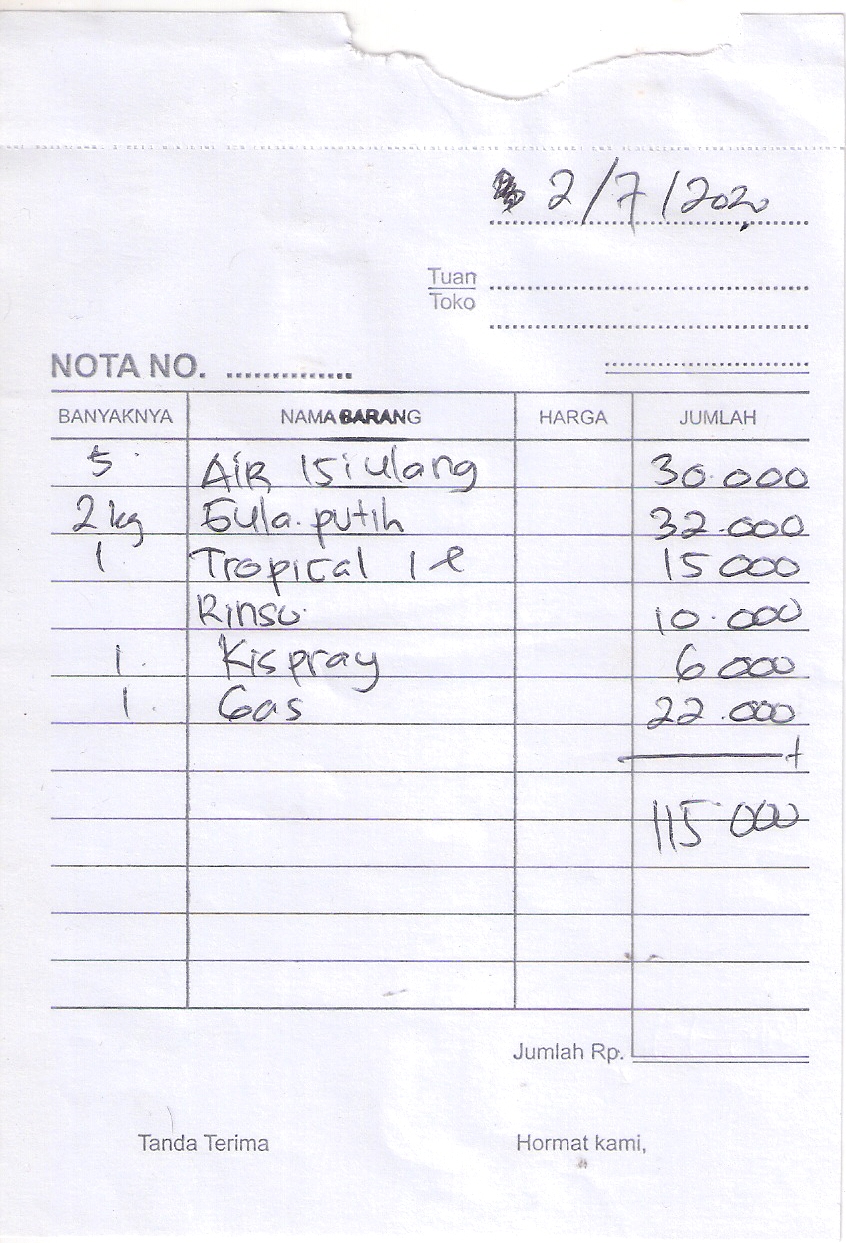 2/7/2020
Tuan
Toko
NOTA NO. ............
BANYAKNYA NAMA BARANG HARGA JUMLAH
5 Air Isi ulang 30.000
2 kg Gula putih 32.000
1 Tropical 1 l 15 000
Rinso 10.000
1 Kispray 6 000
1 Gas 22.000
+
115 000
Jumlah Rp.
Tanda Terima Hormat kami,